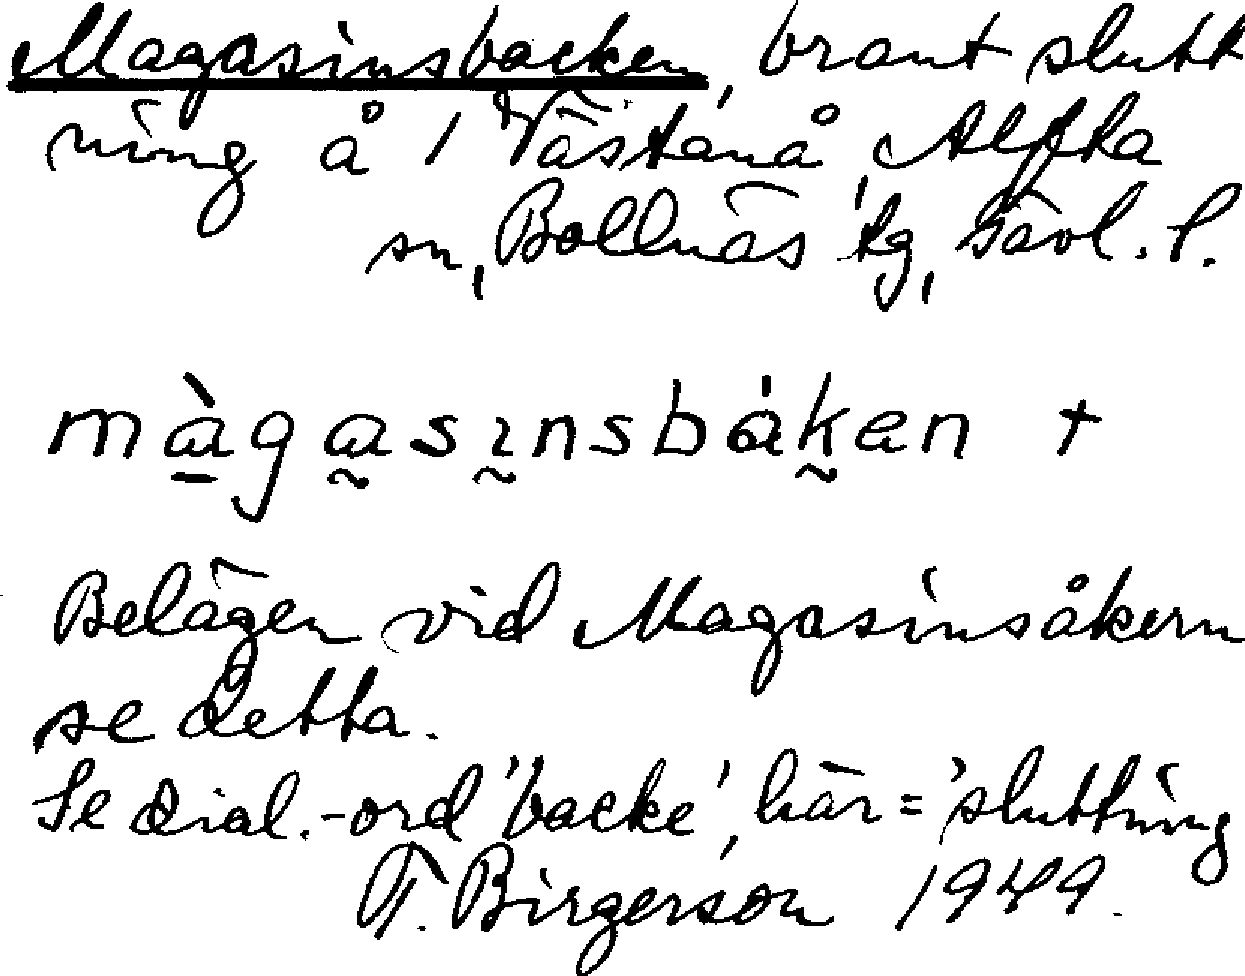 Magasinsbacken, brant slutt
ning å 1 Västanå, Alfta
sn, Bollnäs tg, Gävl. l.
màgasınsbáken +
Belägen vid Magasinsåkern
se detta.
Se dial.-ord 'backe', här = 'sluttning
T. Birgerson 1949.